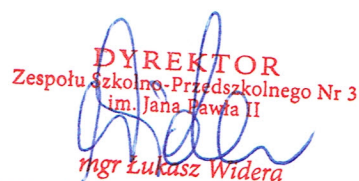 DYREKTOR
Zespołu Szkolno-Przedszkolnego Nr 3
im. Jana Pawła II
mgr Łukasz Widera